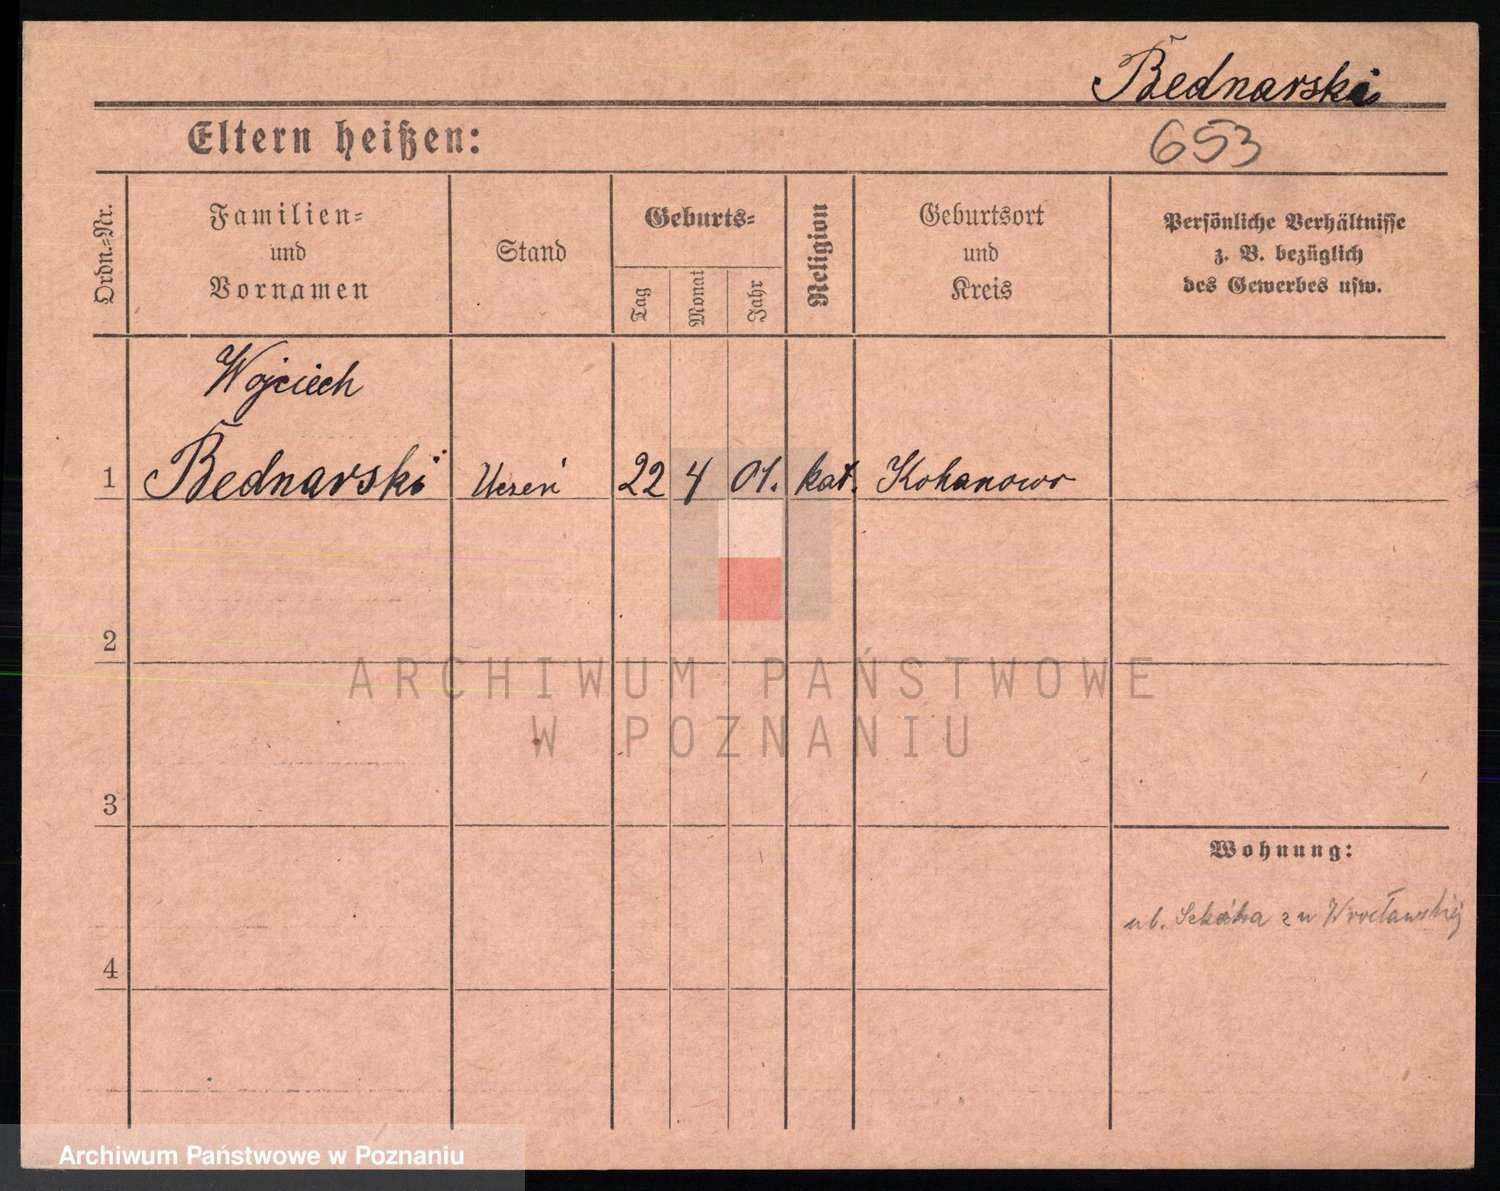 Bednarski
Eltern heißen:
653
Ordn.=Nr.
Familien=
und
Vornamen
Stand
Geburts=
Tag
Monat
Jahr
Religion
Geburtsort
und
Kreis
Persönliche Verhältnisse
z. B. bezüglich
des Gewerbes usw.
Wojciech
1 Bednarski Uczeń 22 4 01. kat. Kokanowo
2
3
Wohnung:
ul. 2 u Wrocławskiej
4
ARCHIWUM PAŃSTWOWE
W POZNANIU
Archiwum Państwowe w Poznaniu